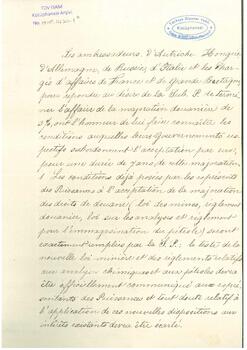 TDV İSAM
Kütüphanesi Arşivi
No
Les ambassadeurs d'Autriche Hongrie
d'Allemagne, de Russie, d'Italie et les Char-
gés d'affaires de France et de Grande Bretagne
pour répondre au désir de la Sub. P. de termi-
ner l'affaire de la majoration douanière de
3%, ont l'honneur de lui faire connaître les
conditions auxquelles leurs Gouvernements res-
pectifs subordonnent l'acceptation par eux,
pour une durée de 7 ans de cette majoration:
1. Les conditions déjà posées par les représen-
tants des Puissances à l'acceptation de la majoration
des droits de douane (loi des mines, règlement
douanier, loi sur les analyses et règlement
pour l'emmagasinage du pétrole) seront
exactement remplies par la S. P.: le texte de la
nouvelle loi minière et des règlements relatifs
aux analyses chimiques et aux pétroles devra
être officiellement communiqué aux repré-
sentants des Puissances et tout doute relatif à
l'application de ces nouvelles dispositions aux
intérêts existants devra être écarté.